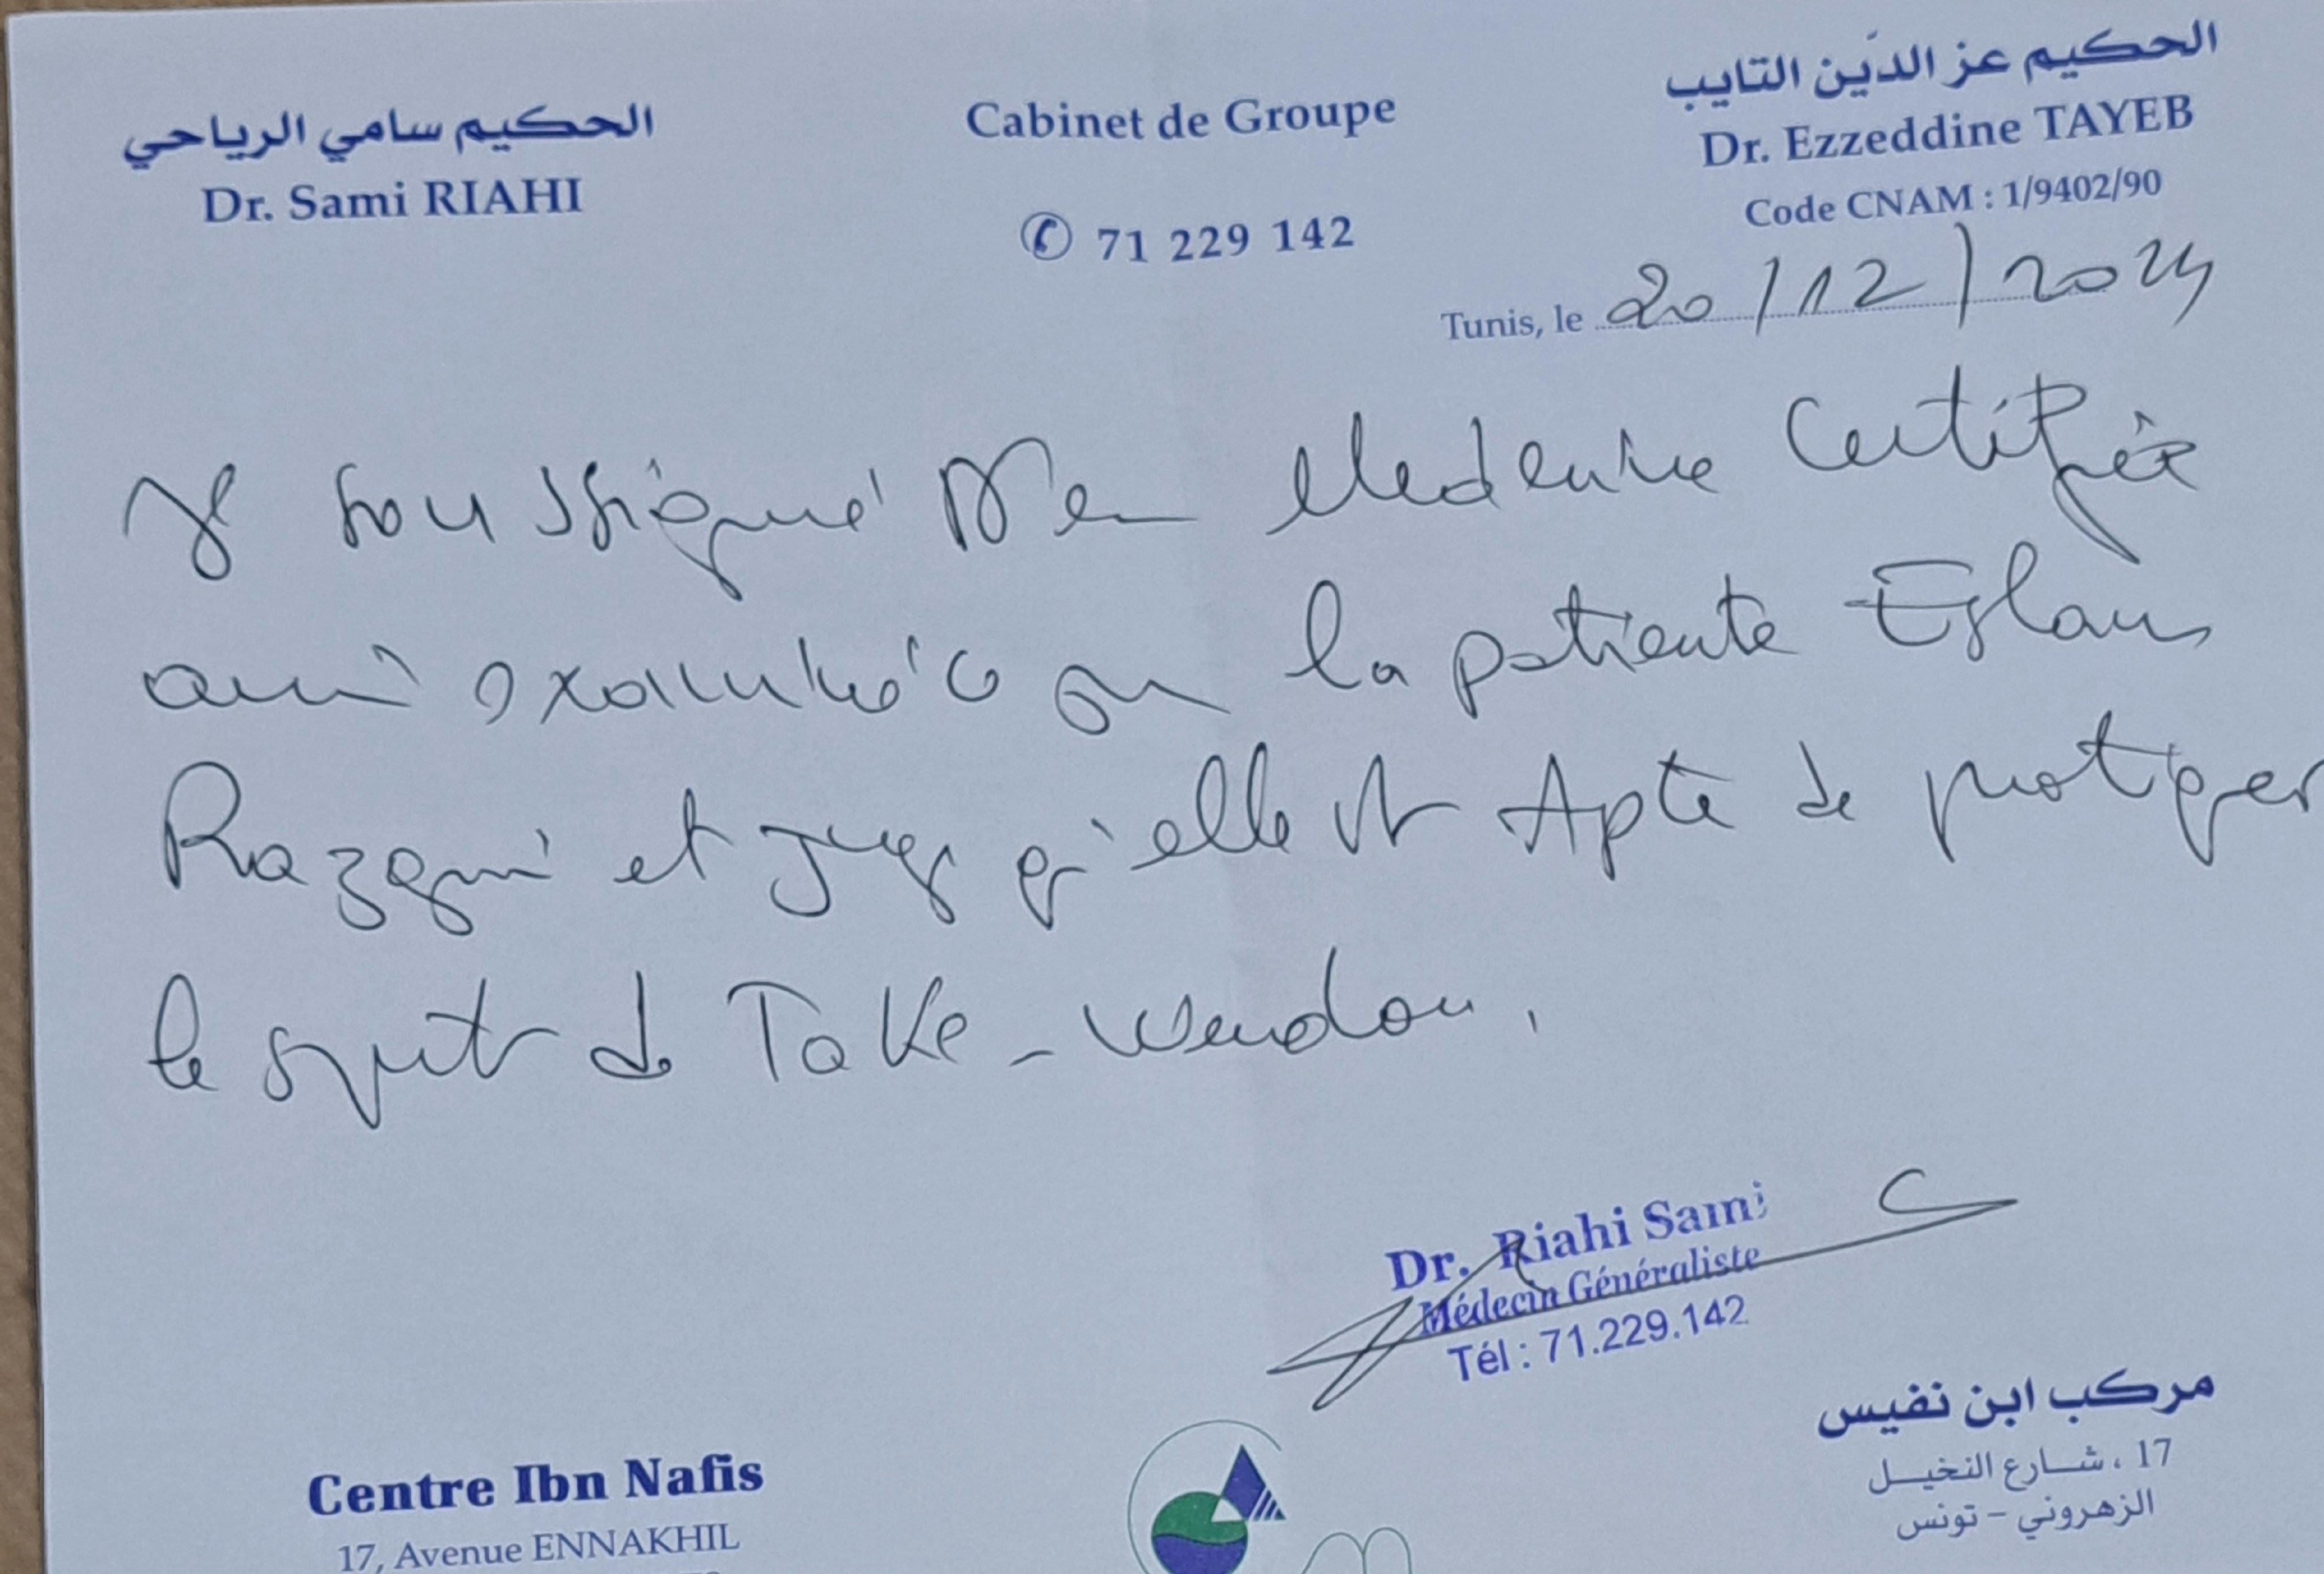 الحكيم سامي الرياحي
Dr. Sami RIAHI
Cabinet de Groupe
✆ 71 229 142
الحكيم عز الدّين التايب
Dr. Ezzeddine TAYEB
Code CNAM : 1/9402/90
Tunis, le 20/12/2024
Je soussigné Dr en Medecine Certifie
avoir examiné la patiente
et juge qu'elle est Apte de pratiquer
le sport de Take-wendou.
Dr. Riahi Sami
Médecin Généraliste
Tél : 71.229.142
Centre Ibn Nafis
17, Avenue ENNAKHIL
مركب ابن نفيس
17 ، شارع النخيل
الزهروني - تونس